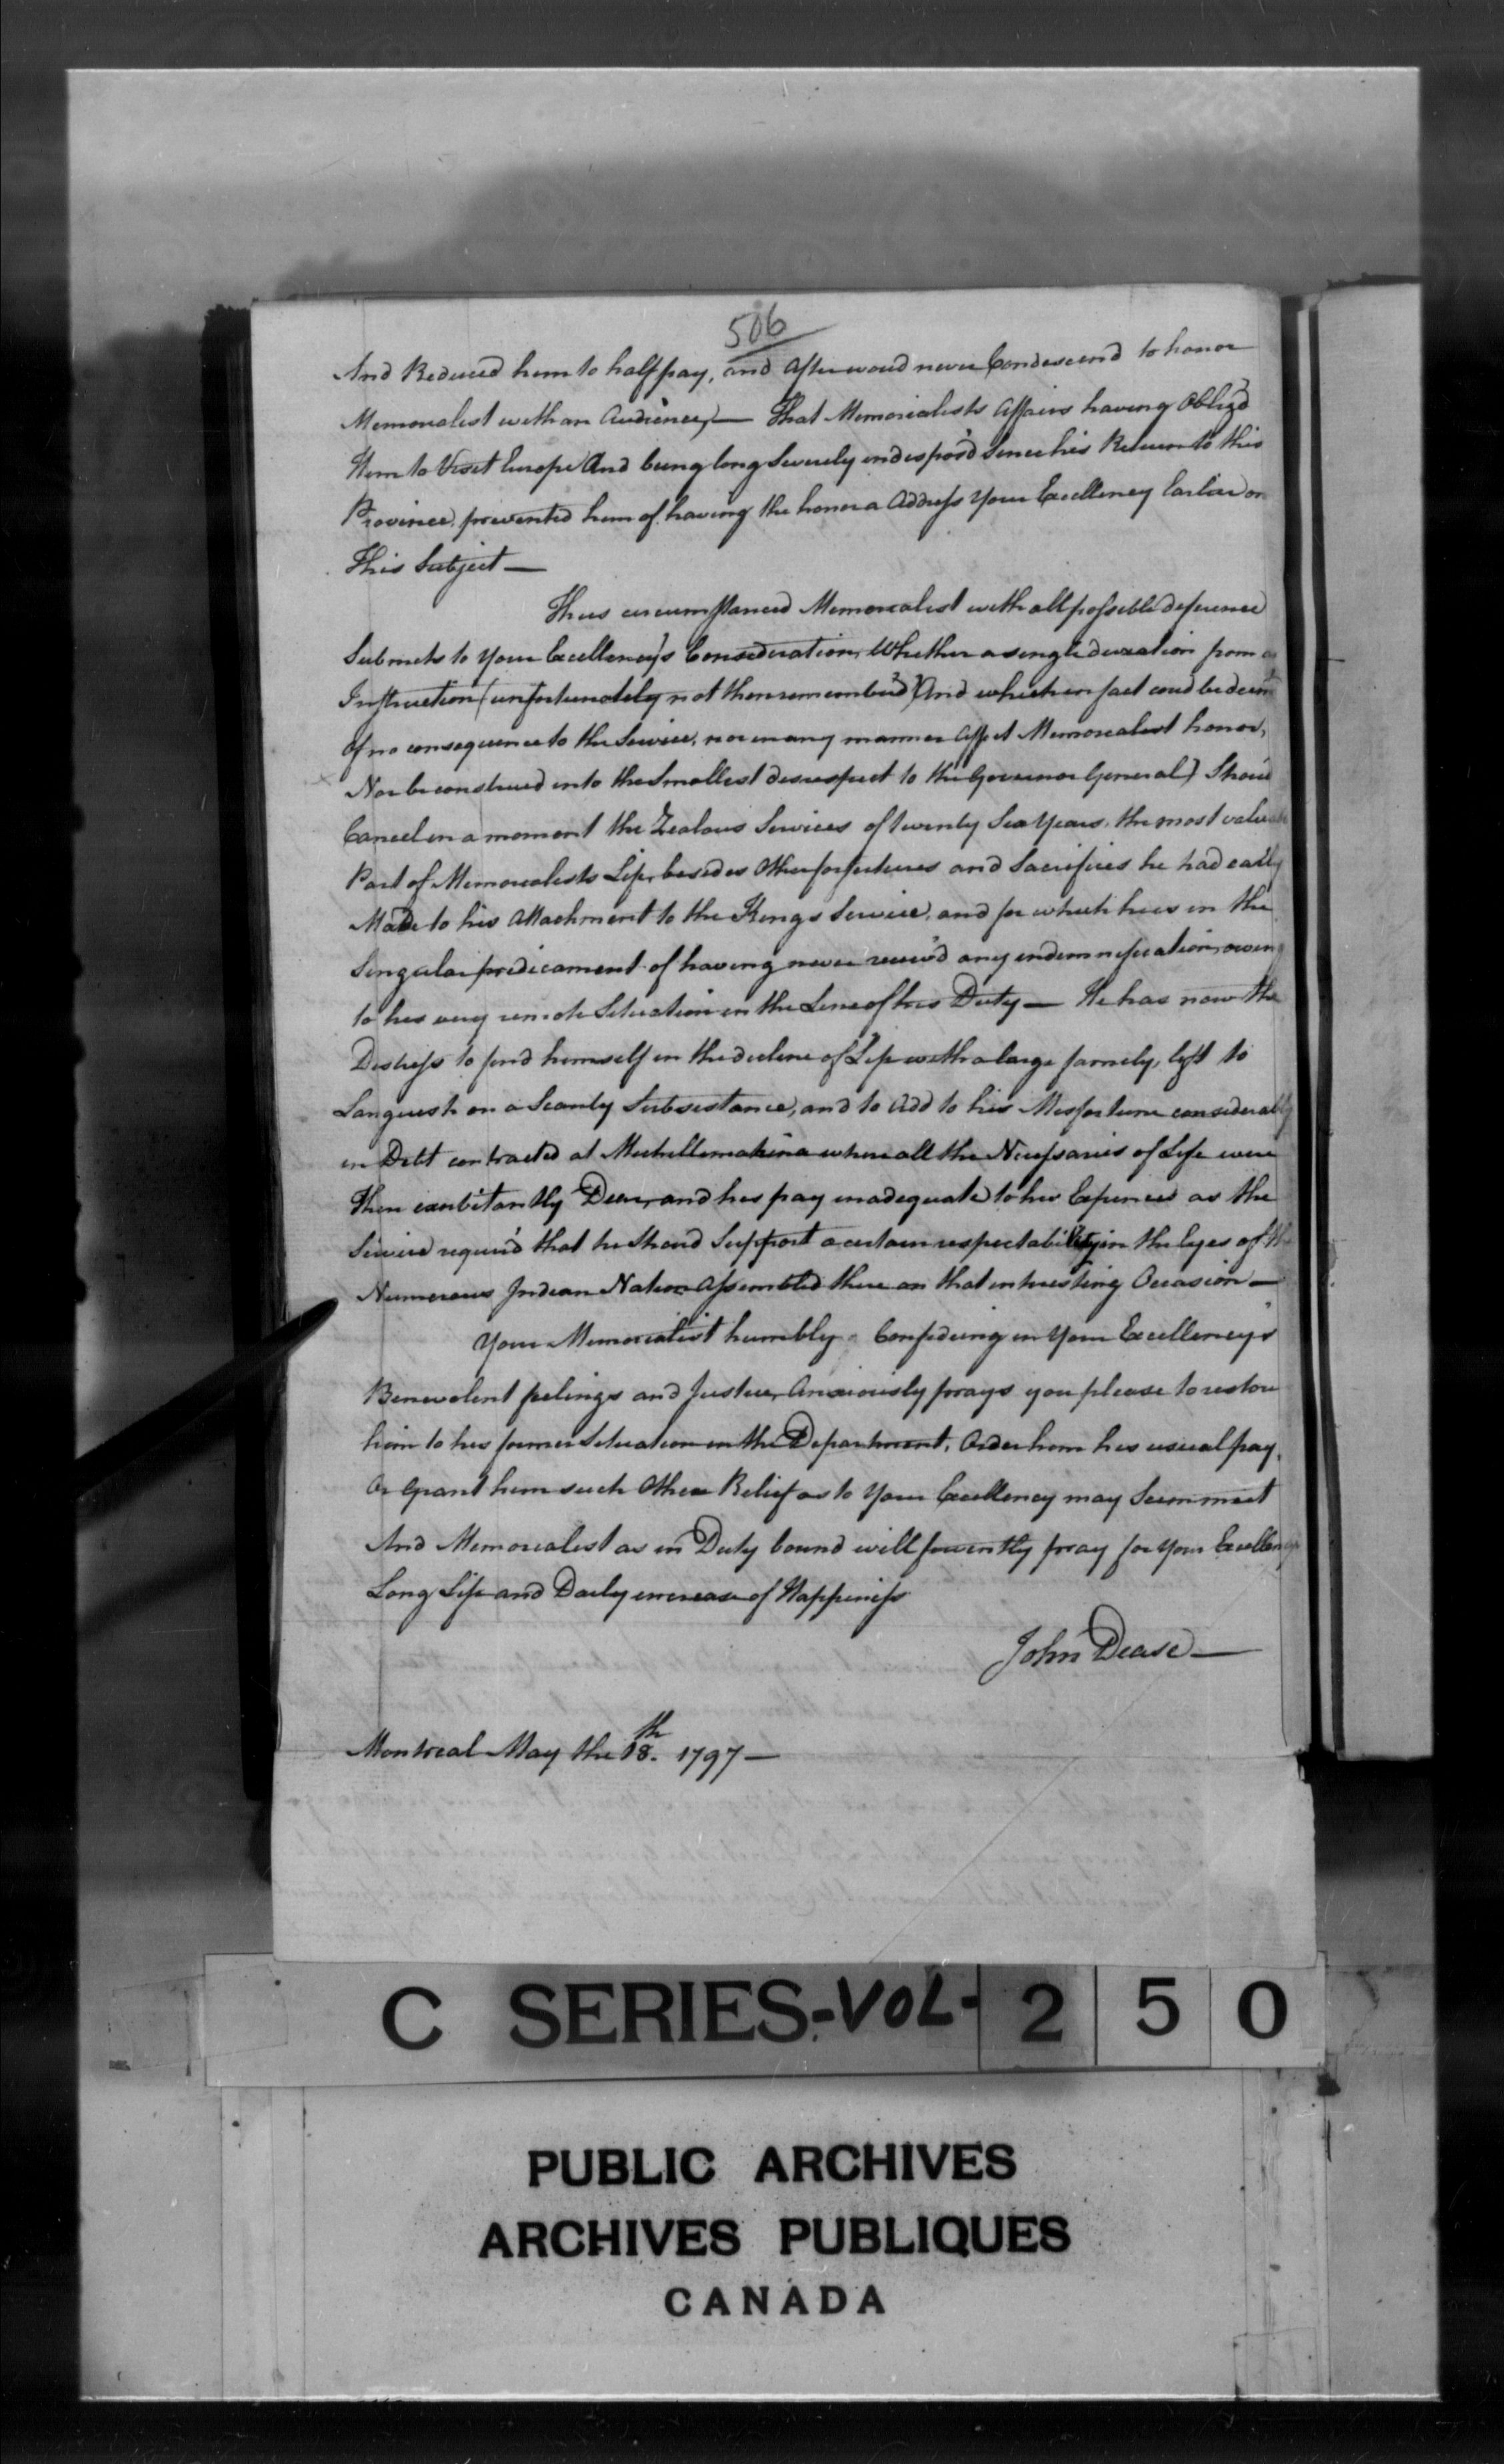 506
And Reduced him to half pay, and After woud never Condescend to honor
Memorialist with an Audience,— That Memorialists Affairs having Oblig'd
Him to Visit Europe And being long Severely indispos'd Since his Return to this
Province, prevented him of having the honor a Address Your Excellency Earlier on
This Subject—
Thus circumstanced Memorialist with all possible deference
Submits to Your Excellency's Consideration, Whether a single deviation from a
Instruction (unfortunately not then remember'd And which in fact coud be deem'd
Of no consequence to the Service, nor in any manner Affect Memorialist honor,
Nor be construed into the Smallest disrespect to the Governor General) Shoud
Cancel in a moment the Zealous Services of twenty Six Years, the most valuable
Part of Memorialists Life, besides Other forfeitures and Sacrifices he had early
Made to his Attachment to the Kings Service, and for which he is in the
Singular predicament of having never receiv'd any indemnification, owing
to his very remote Situation in the Line of his Duty— He has now the
Distress to find himself in the decline of Life with a large family, left to
Languish on a Scanty Subsistance, and to Add to his Misfortune considerably
in Debt contracted at Michillemakina where all the Necessaries of Life were
Then exorbitantly Dear, and his pay inadequate to his Expences as the
Service requir'd that he Shoud Support a certain respectability in the Eyes of the
Numerous Indian Nation Assembled there on that interesting Occasion—
Your Memorialist humbly Confiding in Your Excellency's
Benevolent feelings and Justice, Anxiously prays you please to restore
him to his former Situation in the Department, Order him his usual pay,
Or Grant him such Other Relief as to Your Excellency may Seem meet
And Memorialist as in Duty bound will fervently pray for Your Excellency
Long Life and Daily increase of Happiness
John Dease—
Montreal May the 18th. 1797—
C SERIES-VOL-250
PUBLIC ARCHIVES
ARCHIVES PUBLIQUES
CANADA